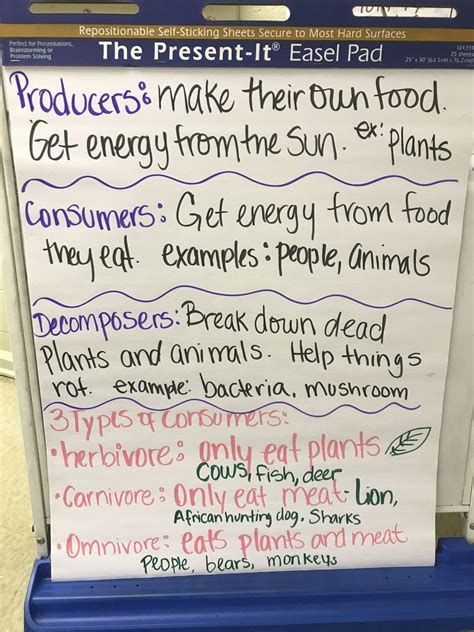 Repositionable Self-Sticking Sheets Secure to Most Hard Surfaces
Perfect for Presentations,
Brainstorming or
Problem Solving
The Present-It® Easel Pad
25 sheets
25" x 30" (63.5cm x 76.2cm)
Producers: make their own food.
Get energy from the Sun. ex: plants
Consumers: Get energy from food
they eat. examples: people, animals
Decomposers: Break down dead
Plants and animals. Help things
rot. example: bacteria, mushroom
3 Types of Consumers:
• herbivore: only eat plants
Cows, fish, deer
• Carnivore: Only eat meat- Lion,
African hunting dog, Sharks
• Omnivore: eats plants and meat
People, bears, monkeys